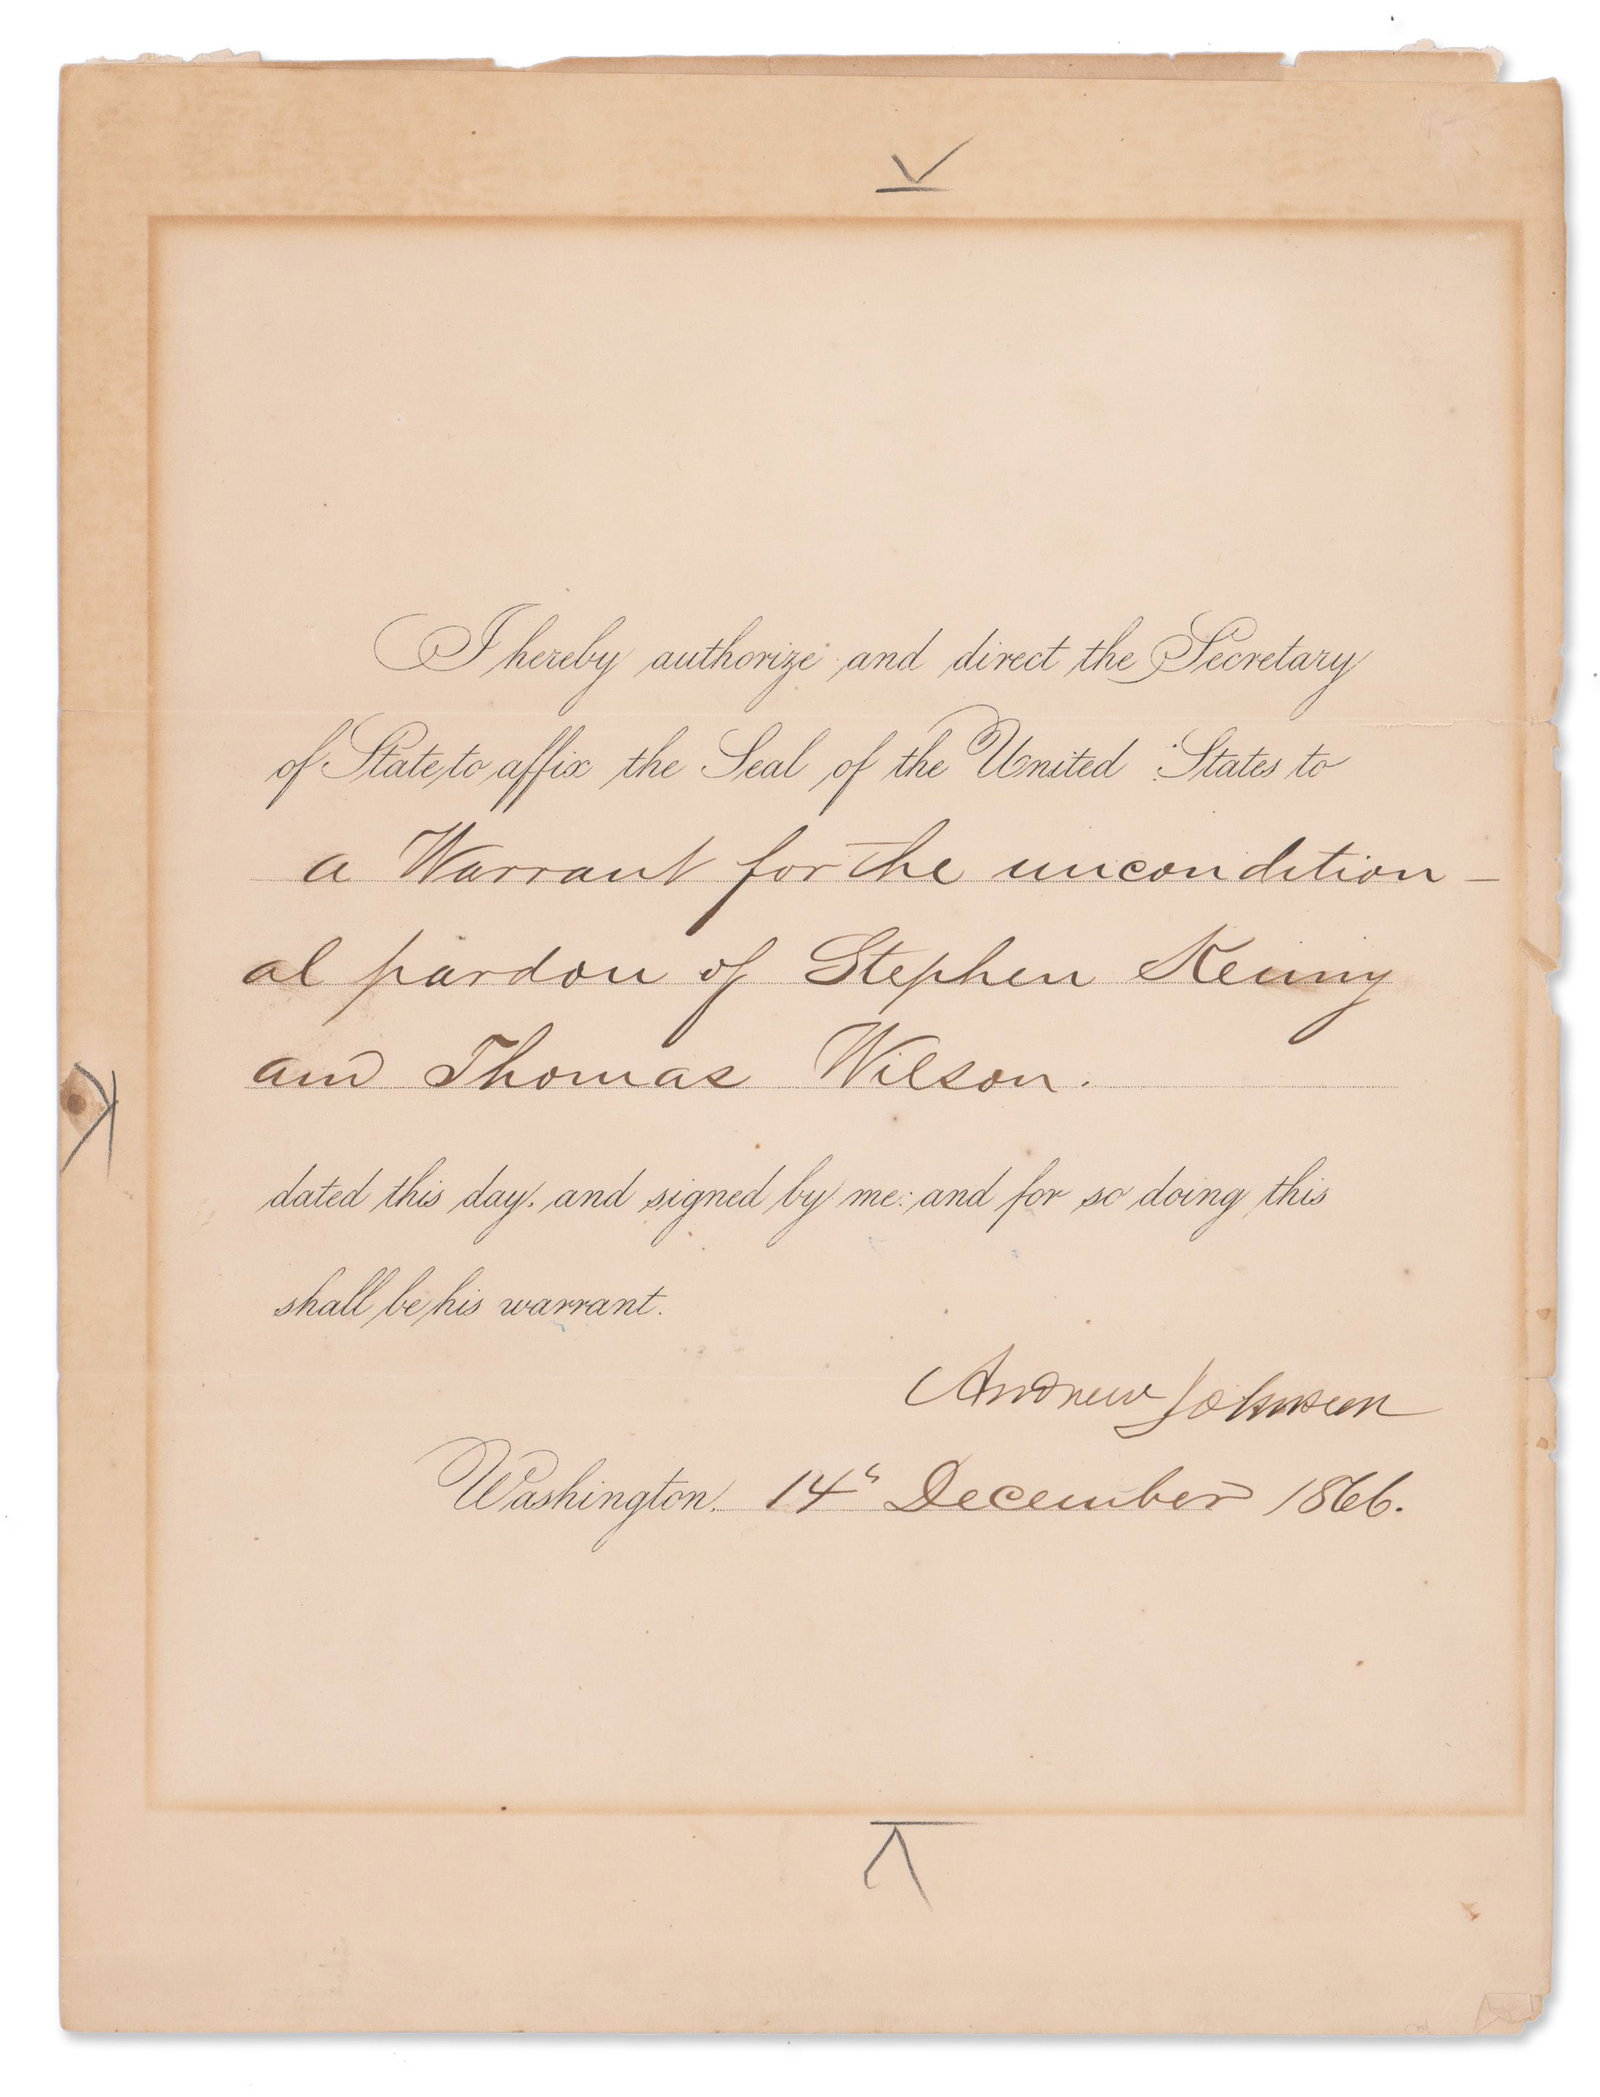 I hereby authorize and direct the Secretary
of State to affix the Seal of the United States to
a Warrant for the uncondition-
al pardon of Stephen Kenny
and Thomas Wilson.
dated this day, and signed by me: and for so doing this
shall be his warrant.
Andrew Johnson
Washington, 14h December 1866.